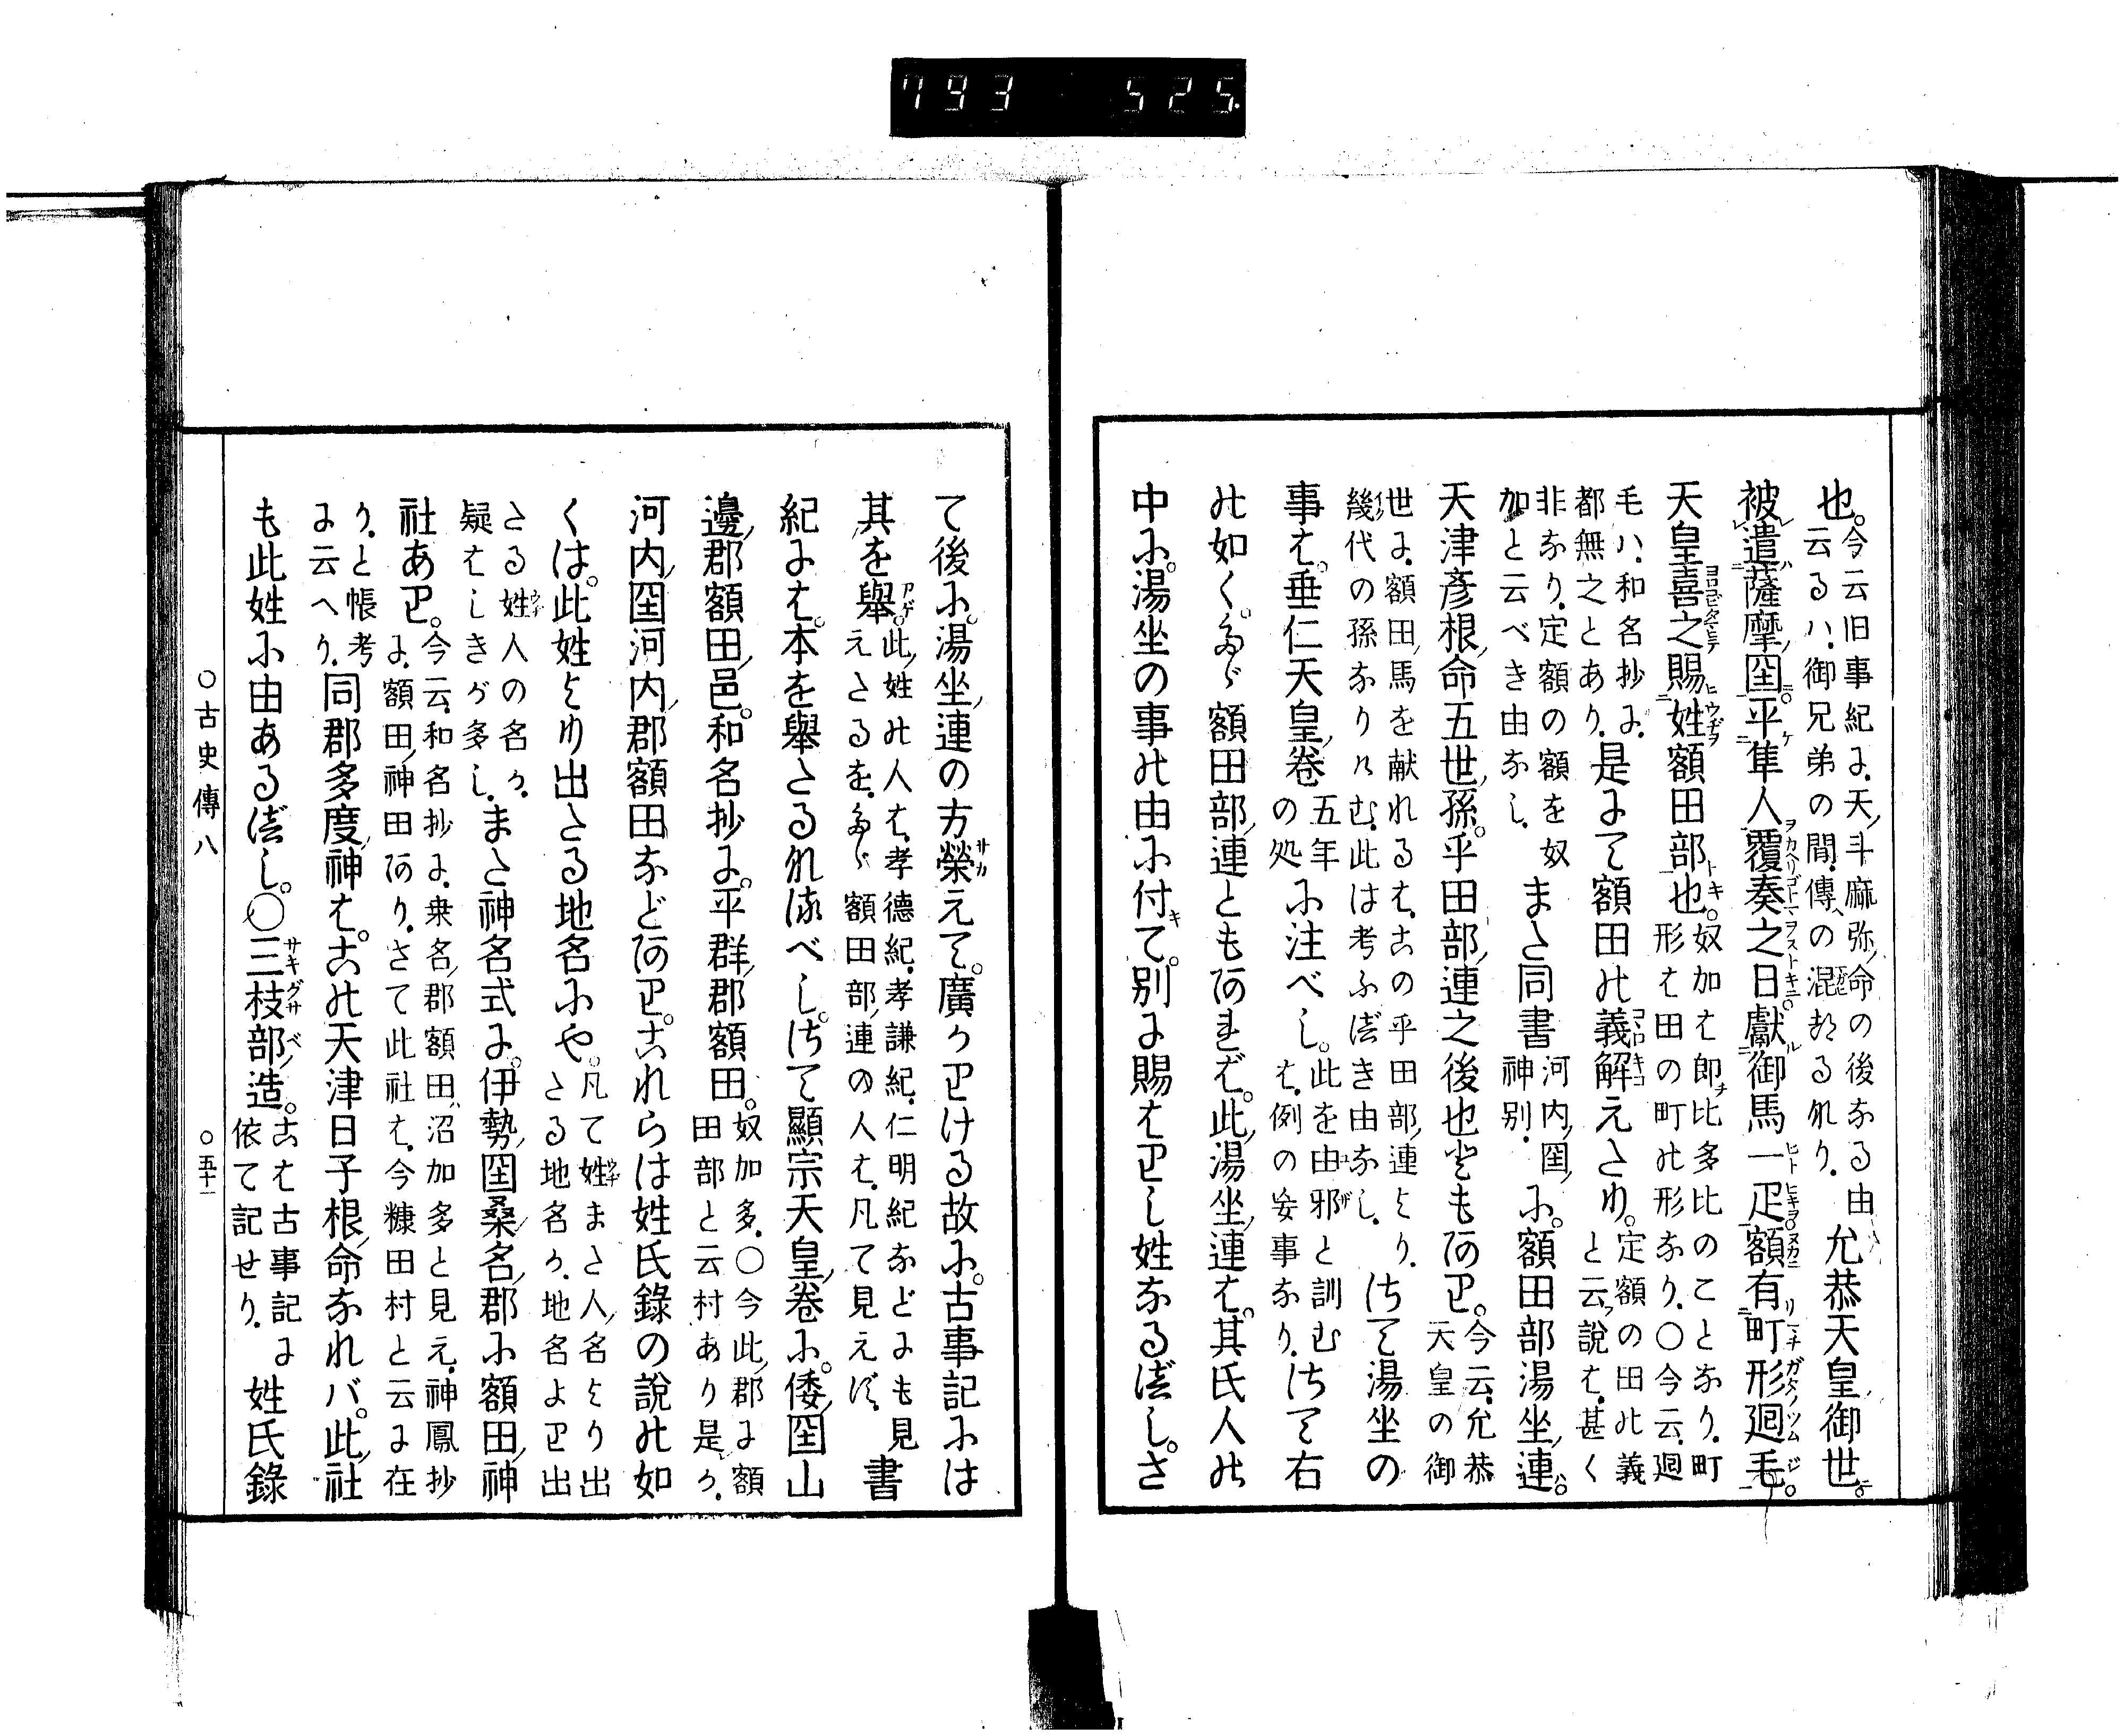 也。今云旧事紀に、天ノ斗麻弥ノ命の後なる由
云るハ、御兄弟の間、傳への混れるなり。
允恭天皇ノ御世。
被遣薩摩ノ国。平隼人覆奏之日。獻御馬一疋。額有町形廻毛。
天皇喜之賜姓額田部也。奴加は郎比多比のことなり。町
形は田の町の形なり。〇今云、廻
毛ハ、和名抄に、
都無之とあり。
是にて額田の義解えたり。定額の田の義
と云フ説は、甚く
非なり。定額の額を奴
加と云べき由なし。
また同書河内ノ国ノ
神別、
に。額田部湯坐ノ連。
天津彦根ノ命五世ノ孫。乎田部ノ連之後也ともあり。今云、允恭
天皇の御
世に、額田ノ馬を献れるは、この平田部ノ連より、
幾代の孫なりけむ、此は考ふべき由なし。
さて湯坐の
事は。垂仁天皇ノ卷五年
の処
に注べし。此を由邪と訓む
は、例の妄事なり。
さて右
の如く。ただ額田部ノ連ともあれば。此ノ湯坐ノ連は。其氏人の
中に。湯坐の事の由に付て。別に賜はりし姓なるべし。さ
て後に。湯坐ノ連の方榮えて。廣かりける故に。古事記には
其を擧。此ノ姓の人は、孝德紀、孝謙紀、仁明紀などにも見
えたるを、ただ額田部ノ連の人は、凡て見えず。
書
紀には。本を擧たるなるべし。さて顯宗天皇ノ卷に。倭ノ国山
邊ノ郡額田ノ邑。和名抄に。平群ノ郡額田。奴加多、〇今此ノ郡に額
田部と云村あり是か、
河内ノ国河内ノ郡額田などあり。これらは姓氏錄の說の如
くは。此姓より出たる地名にや。凡て姓また人ノ名より出
たる地名か、地名より出
たる姓人の名か、
疑はしきが多し。
また神名式に。伊勢ノ国桑名ノ郡に額田ノ神
社あり。今云、和名抄に、桒名ノ郡額田ノ沼加多と見え、神鳳抄
に、額田ノ神田あり。さて此社は、今糠田村と云に在
り、と帳考
に云へり。
同郡多度ノ神は。此の天津日子根ノ命なれバ。此ノ社
も此姓に由あるべし。〇三枝部ノ造。こは古事記に
依て記せり。
姓氏錄
〇古史傳八
〇五十一
793 525